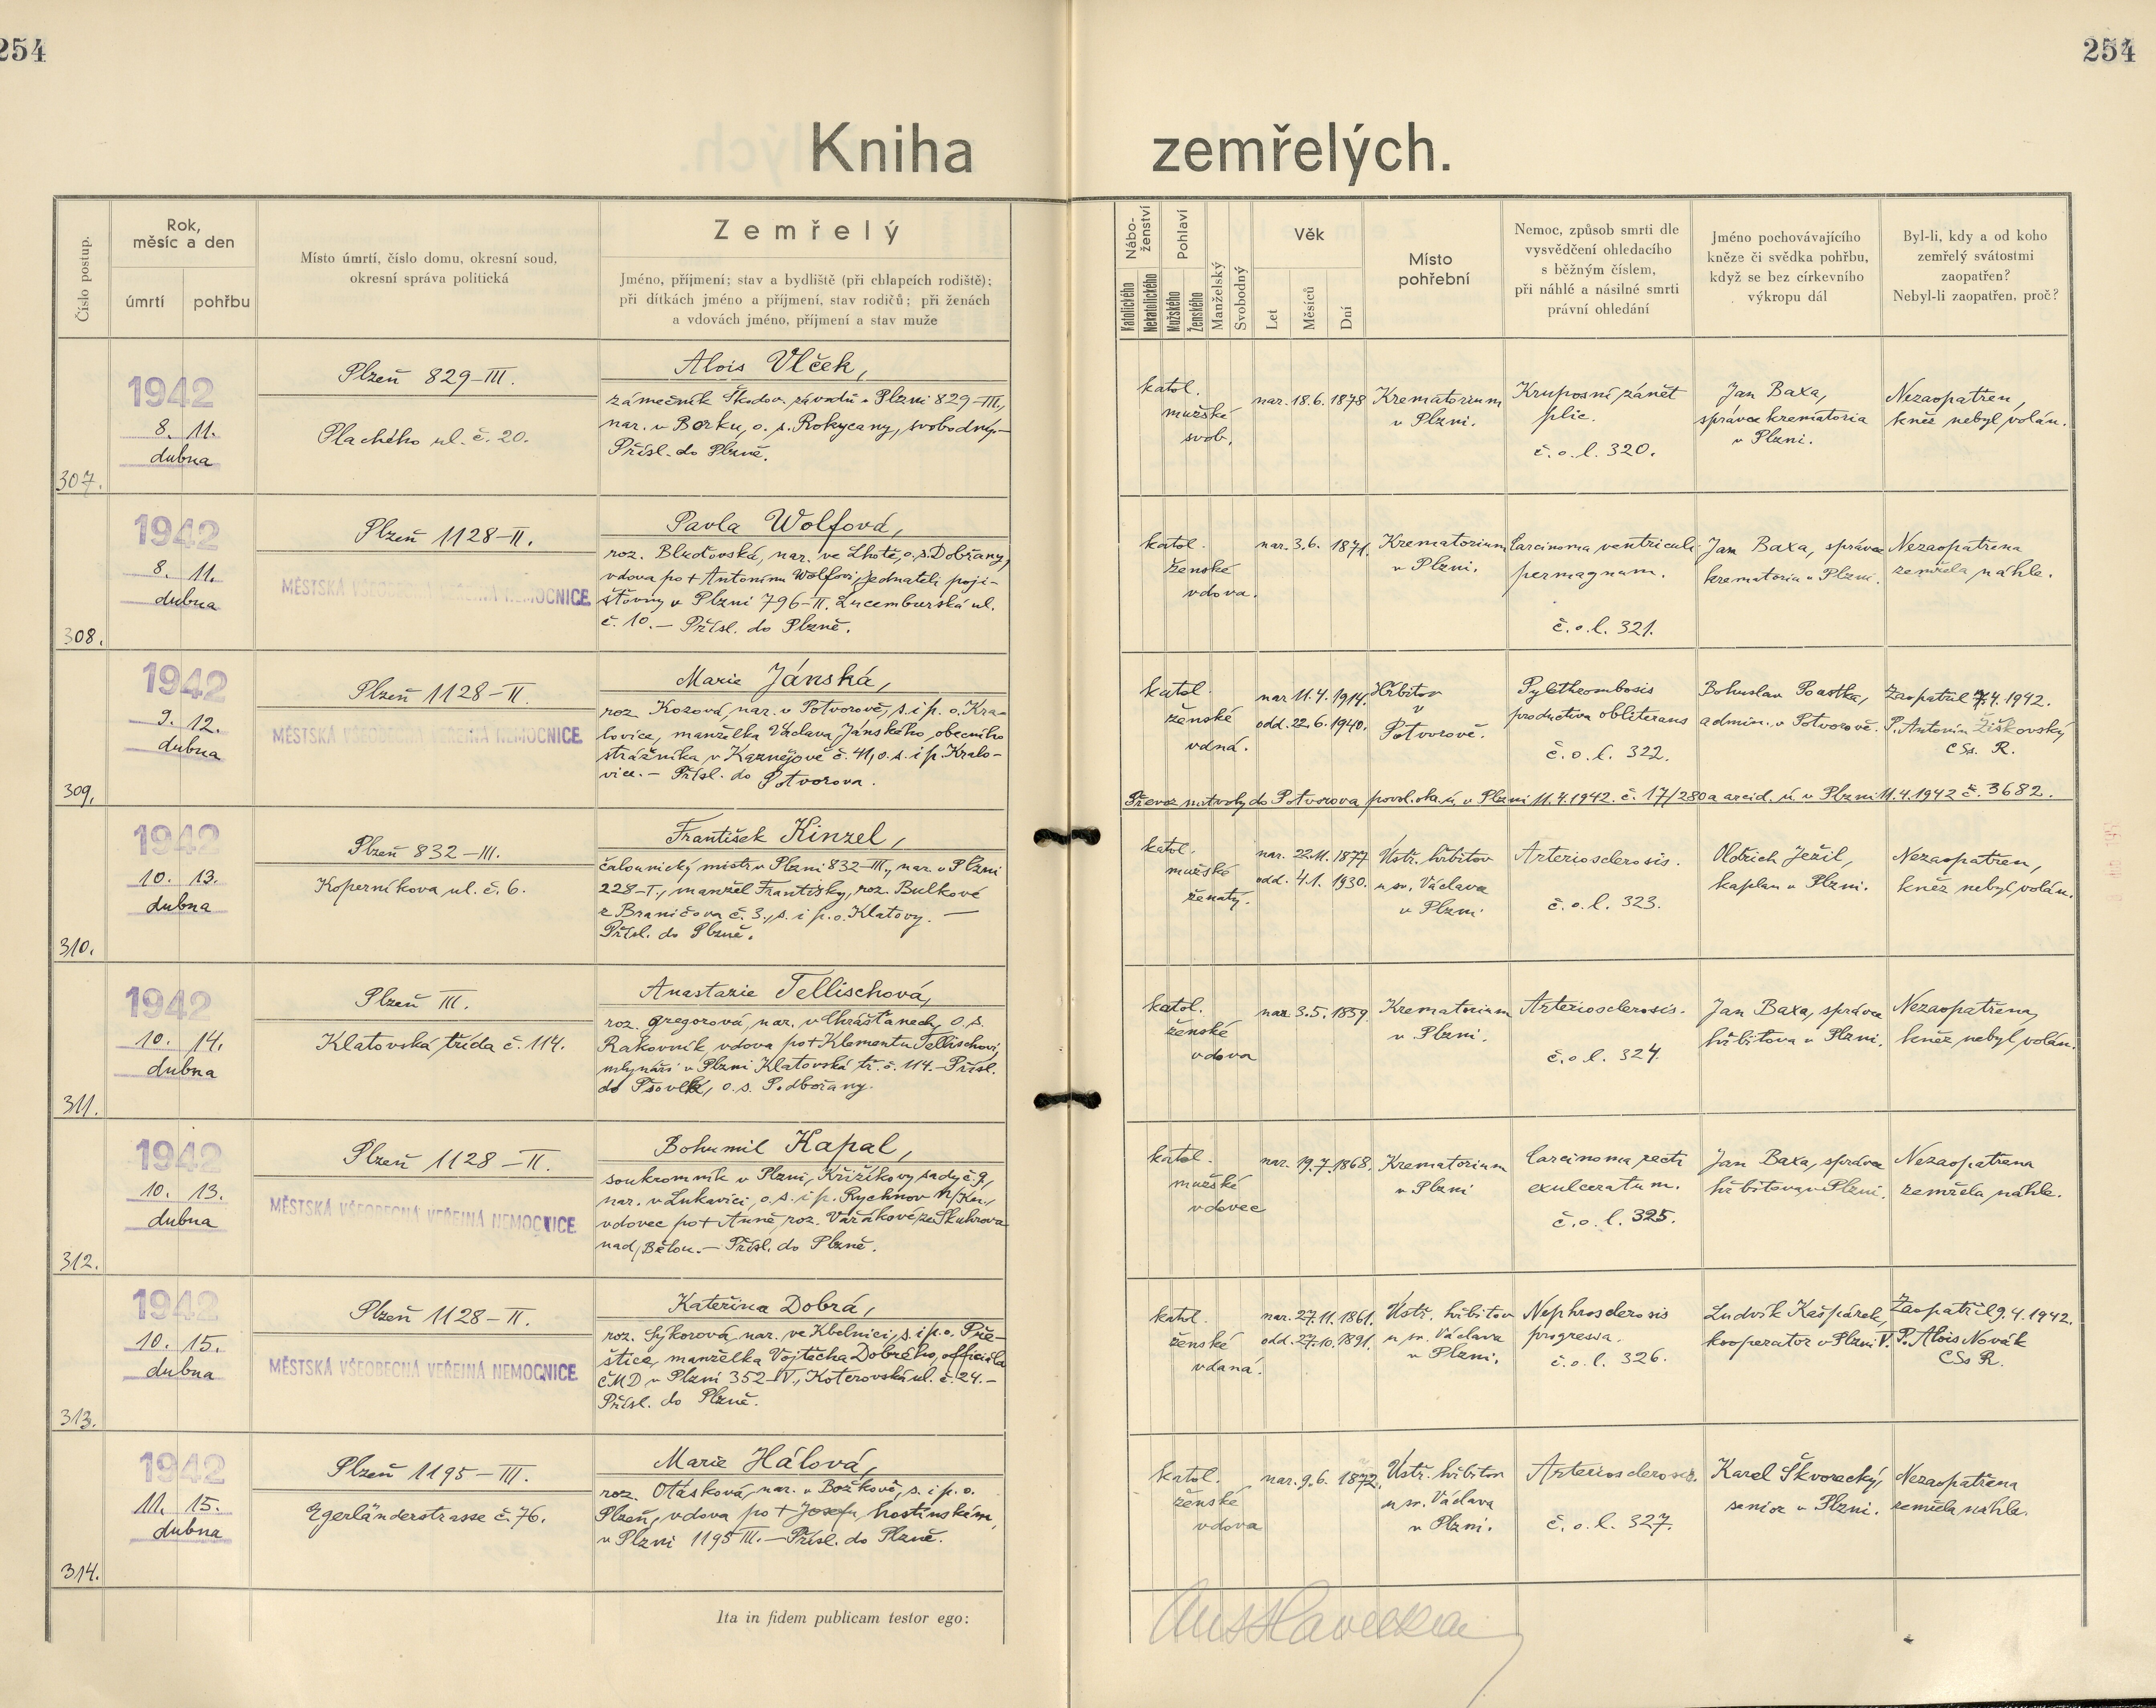 254
254
Kniha zemřelých.
Číslo postup.
Rok,
měsíc a den
úmrtí
pohřbu
Místo úmrtí, číslo domu, okresní soud,
okresní správa politická
Zemřelý
Jméno, příjmení; stav a bydliště (při chlapcích rodiště);
při dítkách jméno a příjmení, stav rodičů; při ženách
a vdovách jméno, příjmení a stav muže
Nábo-
ženství
Katolického
Nekatolického
Pohlaví
Mužského
Ženského
Manželský
Svobodný
Věk
Let
Měsíců
Dní
Místo
pohřební
Nemoc, způsob smrti dle
vysvědčení ohledacího
s běžným číslem,
při náhlé a násilné smrti
právní ohledání
Jméno pochovávajícího
kněze či svědka pohřbu,
když se bez církevního
výkropu dál
Byl-li, kdy a od koho
zemřelý svátostmi
zaopatřen?
Nebyl-li zaopatřen, proč?
307.
1942
8. 11.
dubna
Plzeň 829-III.
Plachého ul. č. 20.
Alois Vlček,
zámečník Škodov. závodů v Plzni 829-III.,
nar. v Borku, o. s. Rokycany, svobodný.-
Přísl. do Plzně.
katol.
mužské
svob.
nar. 18.6. 1878
Krematorium
v Plzni.
Kruposní zánět
plic.
č. o. l. 320.
Jan Baxa,
správce krematoria
v Plzni.
Nezaopatřen,
kněz nebyl volán.
308.
1942
8. 11.
dubna
Plzeň 1128-II.
MĚSTSKÁ VŠEOBECNÁ VEŘEJNÁ NEMOCNICE
Pavla Wolfová,
roz. nar. ve Lhotě, o. s. Dobřany,
vdova po † Antonínu Wolfovi, jednateli poji-
šťovny v Plzni 796-II. Lucemburská ul.
č. 10. - Přísl. do Plzně.
katol.
ženské
vdova.
nar. 3.6. 1871.
Krematorium
v Plzni.
Carcinoma ventriculi
permagnum.
č. o. l. 321.
Jan Baxa, správce
krematoria v Plzni.
Nezaopatřena
zemřela náhle.
309.
1942
9. 12.
dubna
Plzeň 1128-II.
MĚSTSKÁ VŠEOBECNÁ VEŘEJNÁ NEMOCNICE
Marie Jánská,
roz. Kozová, nar. v Potvorově, s. i p. o. Kra-
lovice, manželka Václava Jánského, obecního
strážníka v Kaznějově č. 41, o. s. i p. Kralo-
vice. - Přísl. do Potvorova.
katol.
ženské
vdná.
nar. 11.4. 1914.
odd. 22.6. 1940.
Hřbitov
v
Potvorově.
Pylethrombosis
productiva obliterans
č. o. l. 322.
Bohuslav
admin. v Potvorově.
Zaopatřil 7.4. 1942.
P. Antonín Žiškovský
CSs. R.
Převoz mrtvoly do Potvorova povol. okr. ú. v Plzni 11.4.1942. č. 17/280 a arcid. ú. v Plzni 11.4.1942 č. 3682.
310.
1942
10. 13.
dubna
Plzeň 832-III.
Koperníkova ul. č. 6.
František Kinzel,
čalounický mistr v Plzni 832-III., nar. v Plzni
228-I., manžel Františky, roz. Bulkové
z Braničova č. 3., s. i p. o. Klatovy. -
Přísl. do Plzně.
katol.
mužské
ženatý.
nar. 22.11. 1877
odd. 4.1. 1930.
Ústř. hřbitov
u sv. Václava
v Plzni.
Arteriosclerosis.
č. o. l. 323.
Oldřich Ježil,
kaplan v Plzni.
Nezaopatřen,
kněz nebyl volán.
311.
1942
10. 14.
dubna
Plzeň III.
Klatovská třída č. 114.
Anastazie Tellischová,
roz. Gregorová, nar. v Chrášťanech, o. s.
Rakovník, vdova po † Klementu Tellischovi,
mlynáři v Plzni Klatovská tř. č. 114. - Přísl.
do Pšovlk, o. s. Podbořany.
katol.
ženské
vdova
nar. 3.5. 1859.
Krematorium
v Plzni.
Arteriosclerosis.
č. o. l. 324.
Jan Baxa, správce
hřbitova v Plzni.
Nezaopatřena,
kněz nebyl volán.
312.
1942
10. 13.
dubna
Plzeň 1128-II.
MĚSTSKÁ VŠEOBECNÁ VEŘEJNÁ NEMOCNICE
Bohumil Kapal,
soukromník v Plzni, Křižíkovy sady č. 9,
nar. v Lukavici, o. s. i p. Rychnov n/Kn.,
vdovec po † Anně roz. ze Skuhrova
nad Bělou. - Přísl. do Plzně.
katol.
mužské
vdovec
nar. 19.7. 1868.
Krematorium
v Plzni
Carcinoma recti
exulceratum.
č. o. l. 325.
Jan Baxa, správce
hřbitova v Plzni.
Nezaopatřena
zemřela náhle.
313.
1942
10. 15.
dubna
Plzeň 1128-II.
MĚSTSKÁ VŠEOBECNÁ VEŘEJNÁ NEMOCNICE
Kateřina Dobrá,
roz. Sýkorová, nar. ve Kbelnici, s. i p. o. Pře-
štice, manželka Vojtěcha Dobrého, officiála
ČMD v Plzni 352-IV., Koterovská ul. č. 24. -
Přísl. do Plzně.
katol.
ženské
vdaná.
nar. 27.11. 1861.
odd. 27.10. 1891.
Ústř. hřbitov
u sv. Václava
v Plzni.
Nephrosclerosis
progressa.
č. o. l. 326.
Ludvík Kašpárek,
kooperator v Plzni V.
Zaopatřil 9.4. 1942.
P. Alois Novák
CSs R.
314.
1942
11. 15.
dubna
Plzeň 1195-III.
Egerländerstrasse č. 76.
Marie Hálová,
roz. Otásková, nar. v Božkově, s. i p. o.
Plzeň, vdova po † Josefu, hostinském,
v Plzni 1195 III. - Přísl. do Plzně.
katol.
ženské
vdova
nar. 9.6. 1872.
Ústř. hřbitov
u sv. Václava
v Plzni.
Arteriosclerosis.
č. o. l. 327.
Karel Škvorecký,
senior v Plzni.
Nezaopatřena
zemřela náhle.
Ita in fidem publicam testor ego: